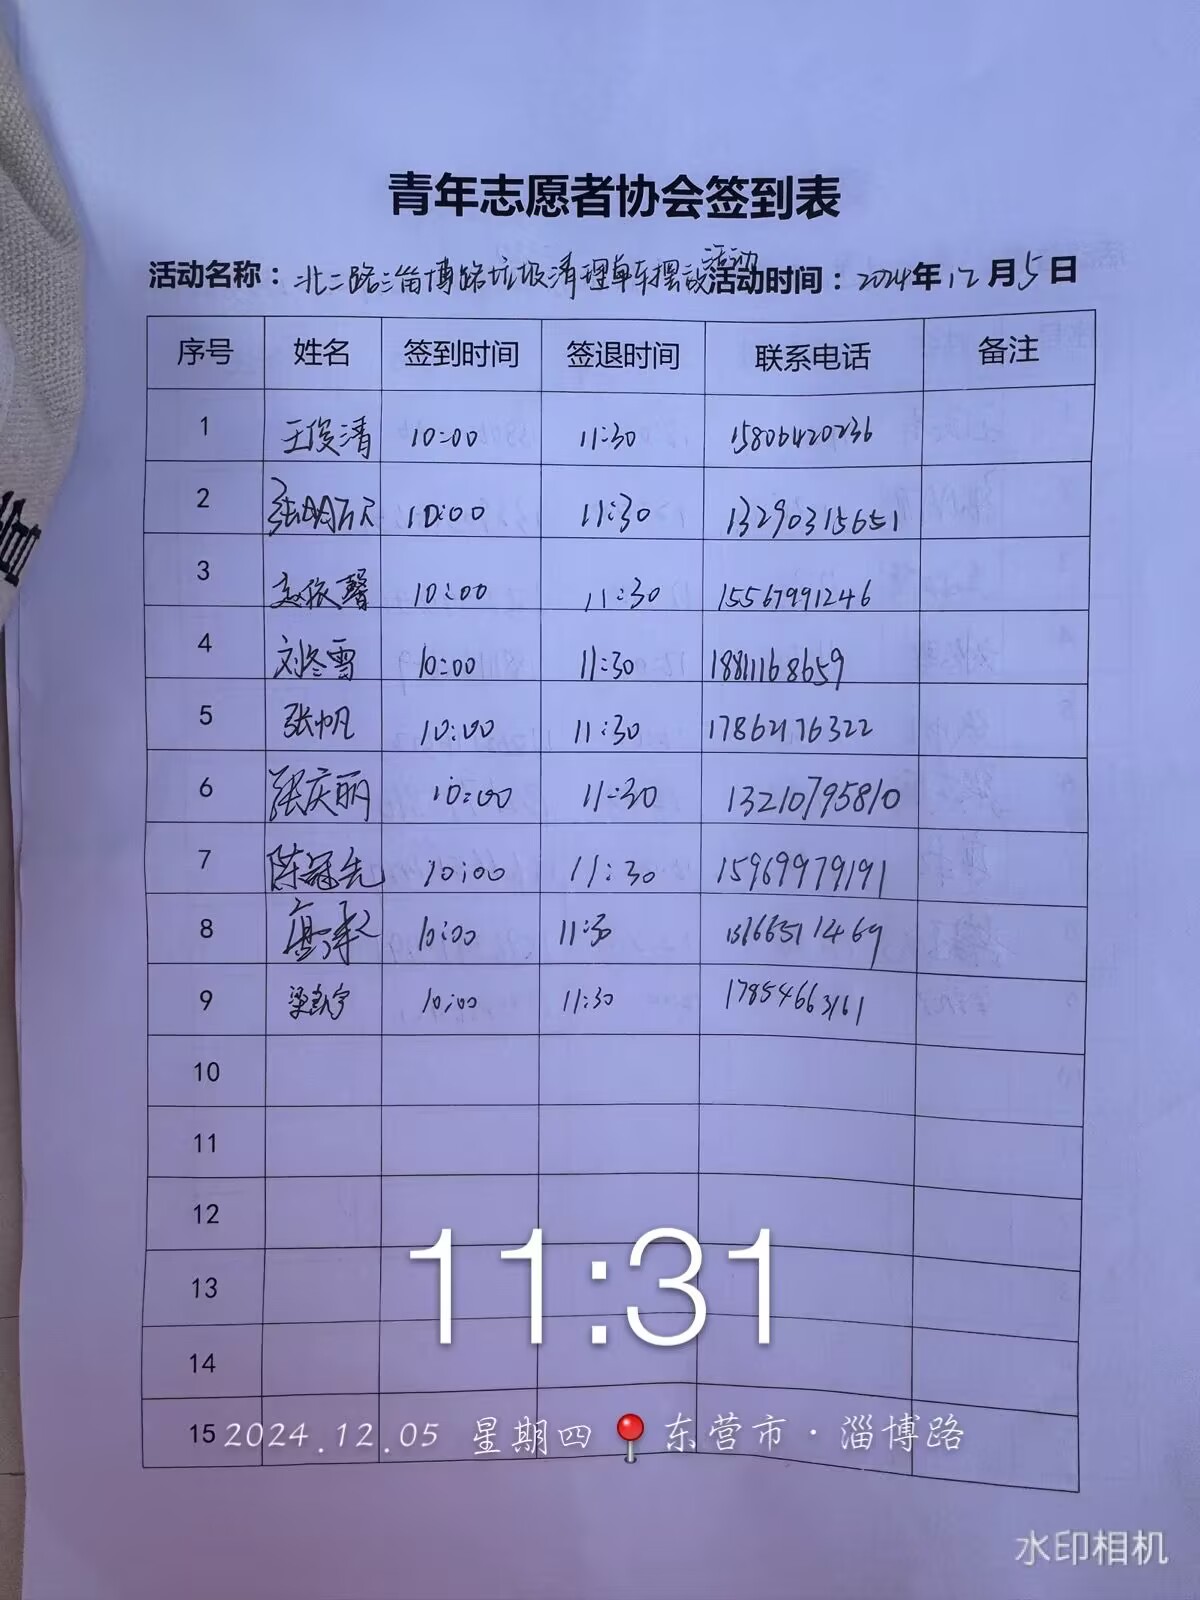 青年志愿者协会签到表
活动名称：北二路淄博路垃圾清理单车摆放活动 活动时间：2024年12月5日
序号 姓名 签到时间 签退时间 联系电话 备注
1 王俊清 10:00 11:30 15806420236
2 张明万天 10:00 11:30 13290315651
3 赵依馨 10:00 11:30 15567991246
4 刘冬雪 10:00 11:30 18811168659
5 张帆 10:00 11:30 17862176322
6 张庆丽 10:00 11:30 13210795810
7 陈冠先 10:00 11:30 15969979191
8 10:00 11:30
9 10:00 11:30 17854663161
10
11
12
11:31
13
14
15
2024.12.05 星期四 东营市·淄博路
水印相机